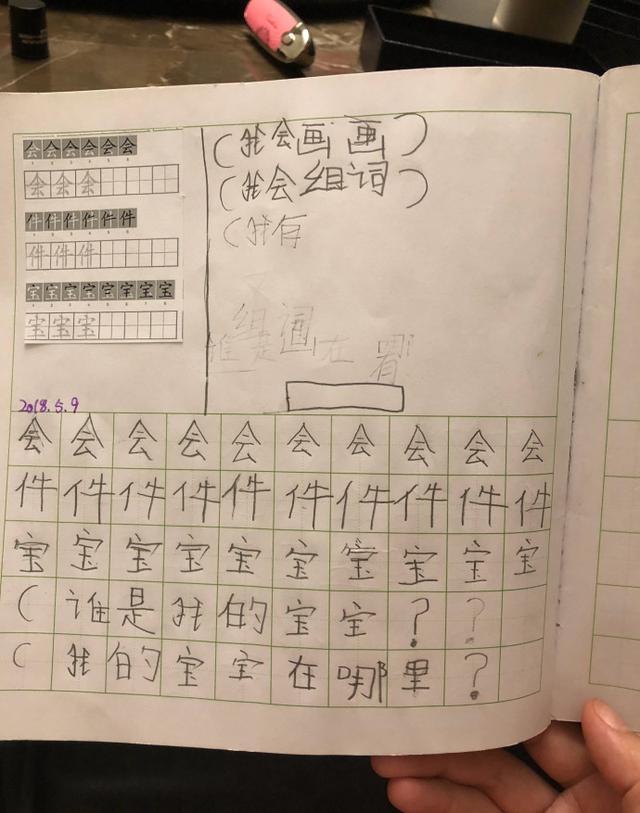 会会会会会会
会会会
件件件件件件
件件件
宝宝宝宝宝宝宝宝
宝宝宝
2018.5.9
(我会画画)
(我会组词)
(我存
组词
谁是 在 哪
会会会会会会会会会会
件件件件件件件件件件
宝宝宝宝宝宝宝宝宝宝
(谁是我的宝宝??
(我的宝宝在哪里?